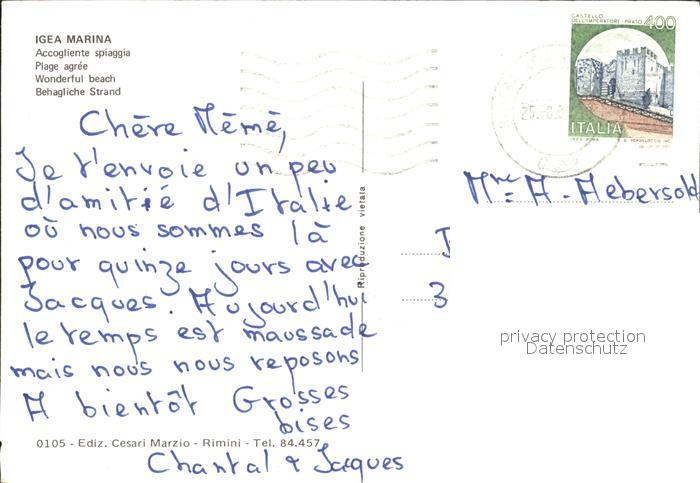 IGEA MARINA
Accogliente spiaggia
Plage agrée
Wonderful beach
Behagliche Strand
CASTELLO
DELL'IMPERATORE - PRATO 400
ITALIA
25.
Chère Mémé,
Je t'envoie un peu
d'amitié d'Italie
où nous sommes là
pour quinze jours avec
Jacques. Aujourd'hui
le temps est maussade
mais nous nous reposons
A bientôt Grosses
bises
Chantal & Jacques
Riproduzione vietata
Mme A. Aebersold
3
privacy protection
Datenschutz
0105 - Ediz. Cesari Marzio - Rimini - Tel. 84.457